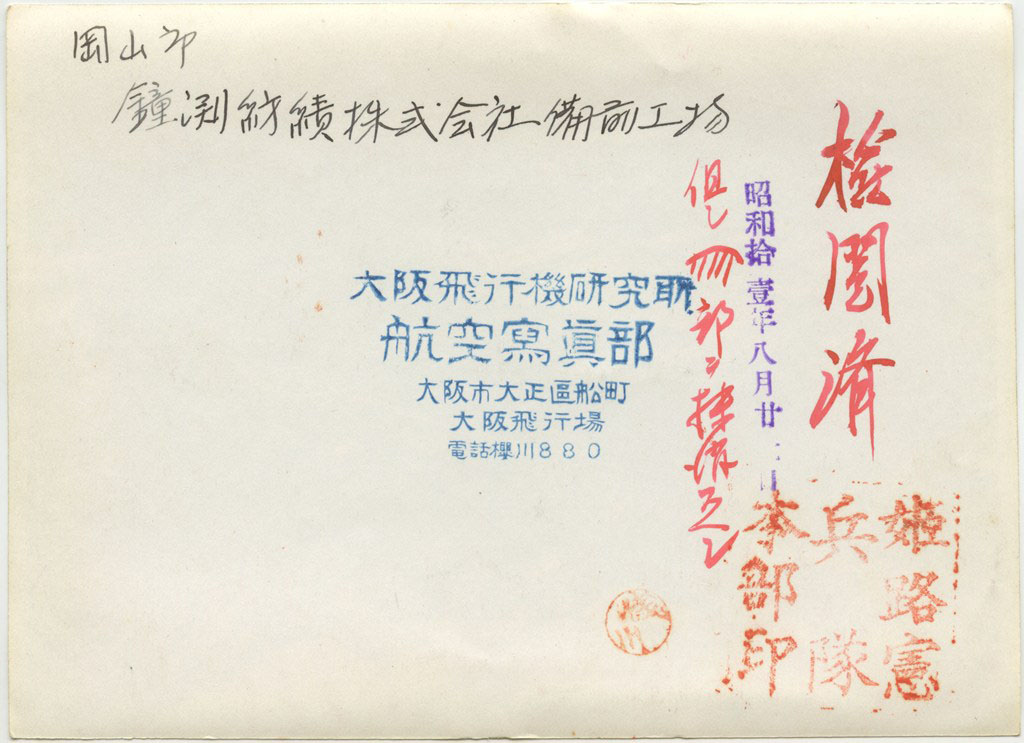 岡山市
鐘渕紡績株式会社備前工場
檢閲済
昭和拾壹年八月廿 日
但シ四部ニ
大阪飛行機研究所
航空寫眞部
大阪市大正區船町
大阪飛行場
電話櫻川880
姫路憲
兵隊
本部印